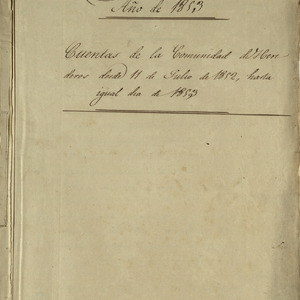 Año de 1853
Cuentas de la Comunidad de Ren-
deros desde 11 de Julio de 1852, hasta
igual dia de 1853